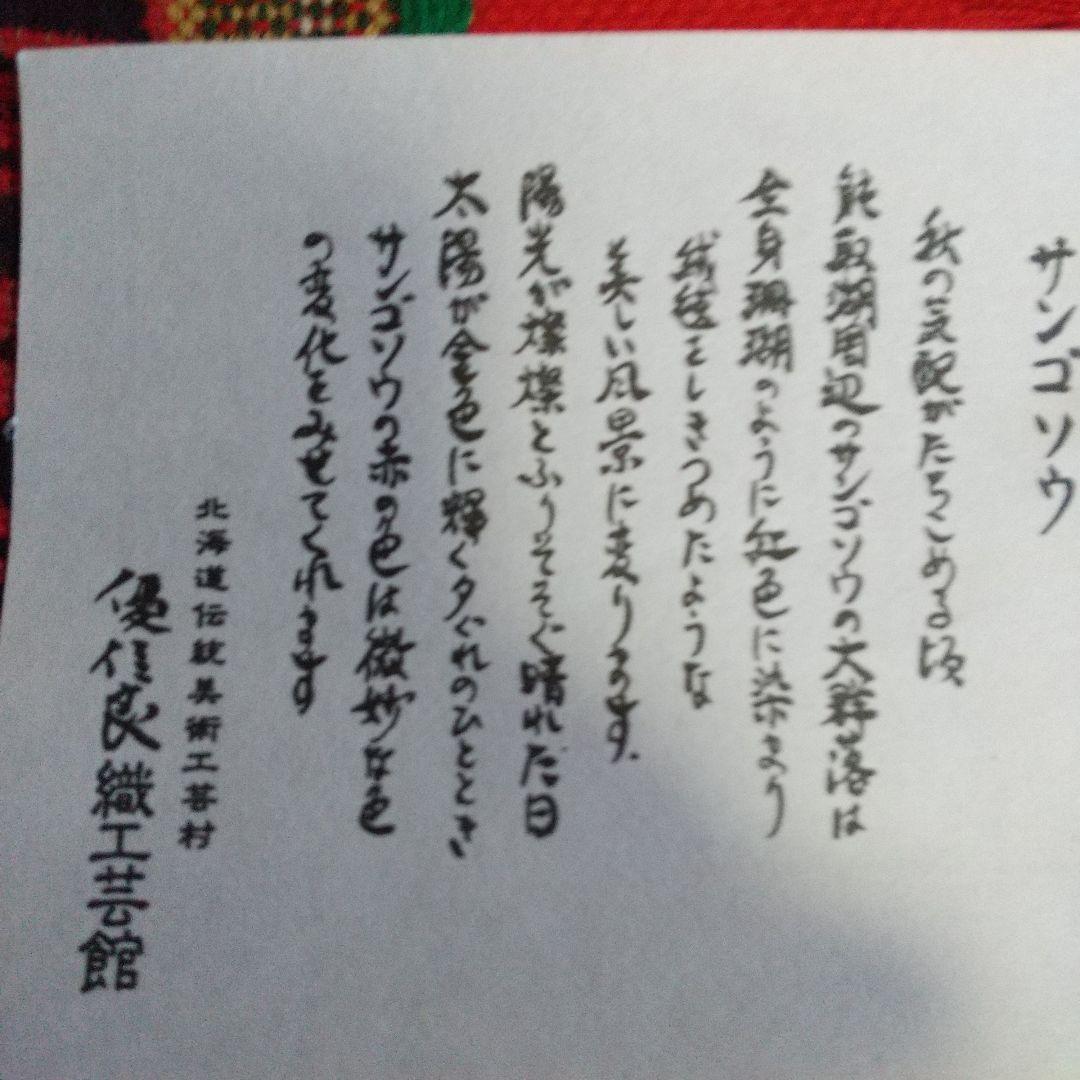 サンゴソウ
秋の気配がたちこめる頃
能取湖周辺のサンゴソウの大群落は
全身珊瑚のように紅色に染まり
絨毯をしきつめたような
美しい風景に変ります。
陽光が燦燦とふりそそぐ晴れた日
太陽が金色に輝く夕ぐれのひととき
サンゴソウの赤の色は微妙な色
の変化をみせてくれます
北海道伝統美術工芸村
優佳良織工芸館